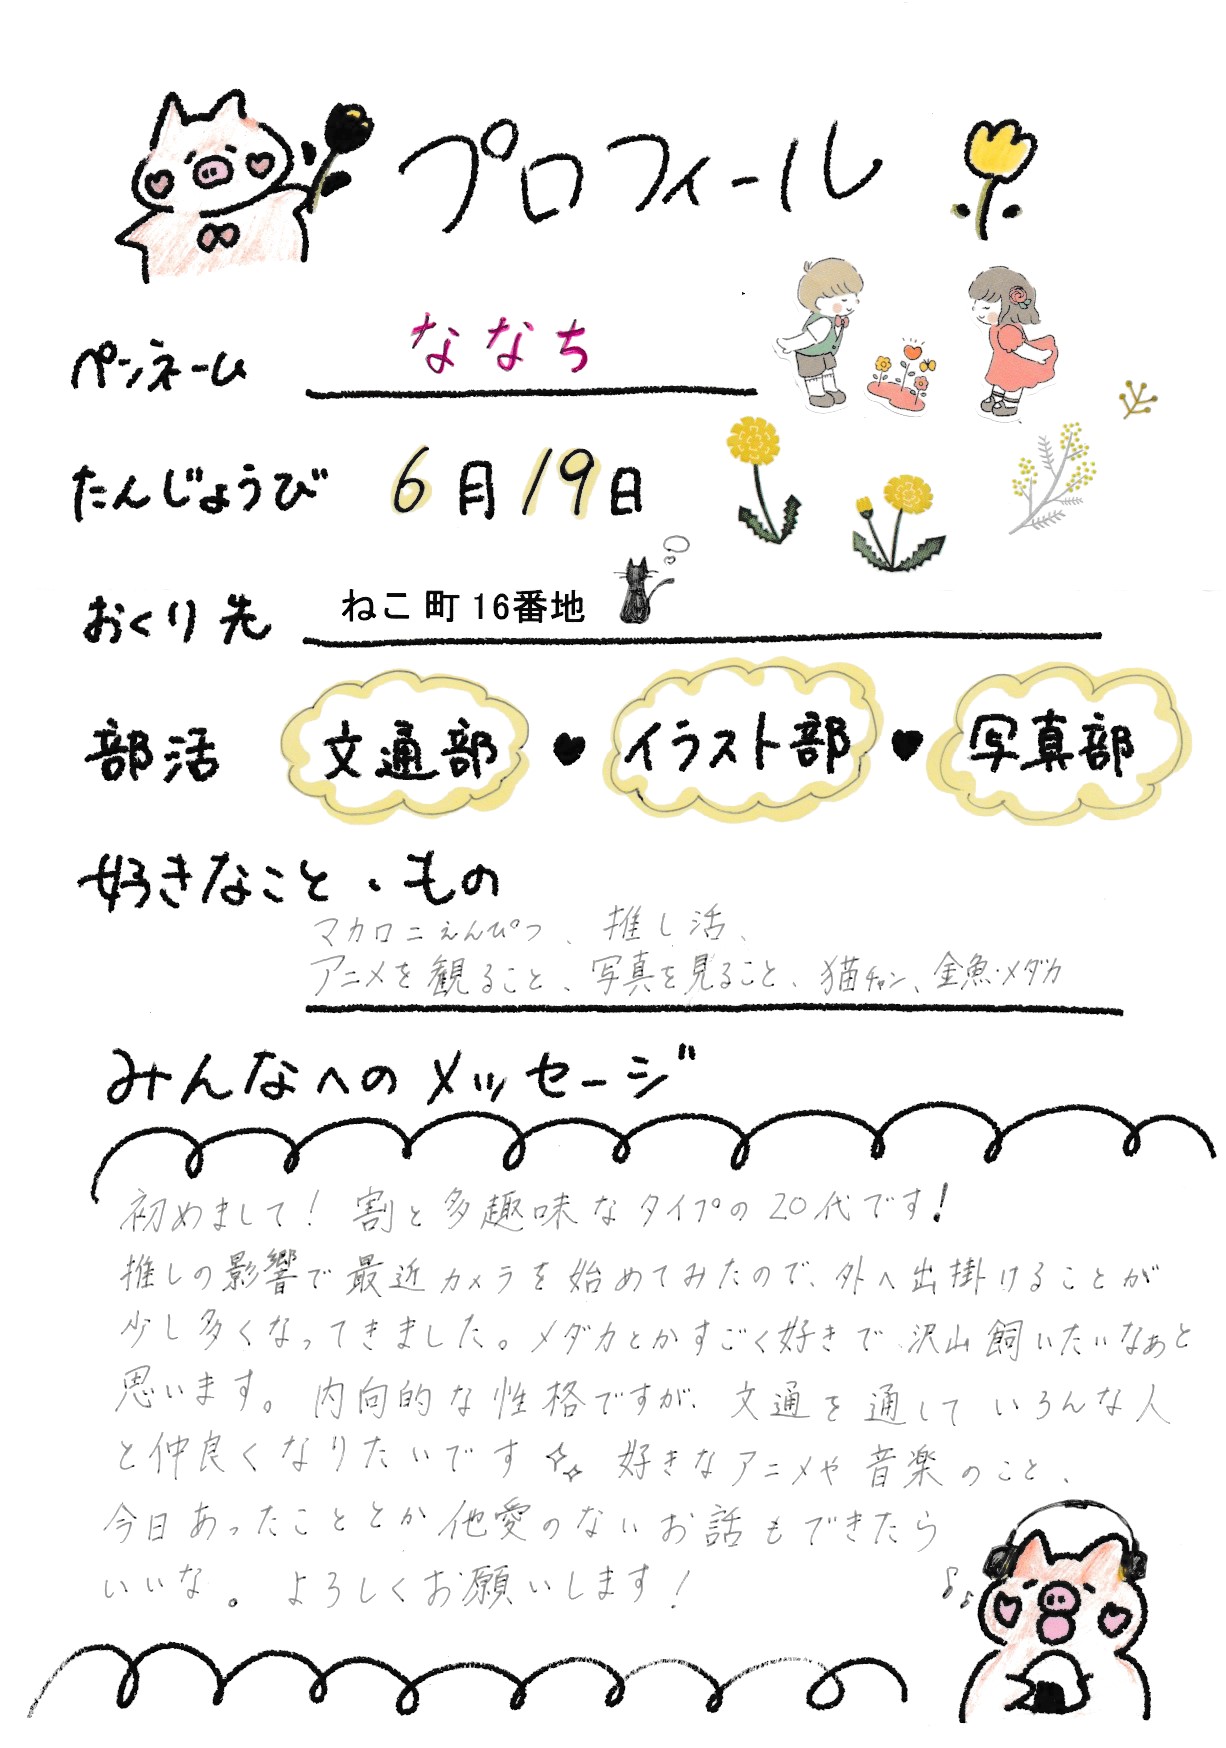 プロフィール
ペンネーム ななち
たんじょうび 6月19日
おくり先 ねこ町16番地
部活 文通部 ♥ イラスト部 ♥ 写真部
好きなこと・もの
マカロニえんぴつ、推し活、
アニメを観ること、写真を見ること、猫チャン、金魚・メダカ
みんなへのメッセージ
初めまして！割と多趣味なタイプの20代です！
推しの影響で最近カメラを始めてみたので、外へ出掛けることが
少し多くなってきました。メダカとかすごく好きで、沢山飼いたいなぁと
思います。内向的な性格ですが、文通を通していろんな人
と仲良くなりたいです 好きなアニメや音楽のこと、
今日あったこととか他愛のないお話もできたら
いいな。よろしくお願いします！